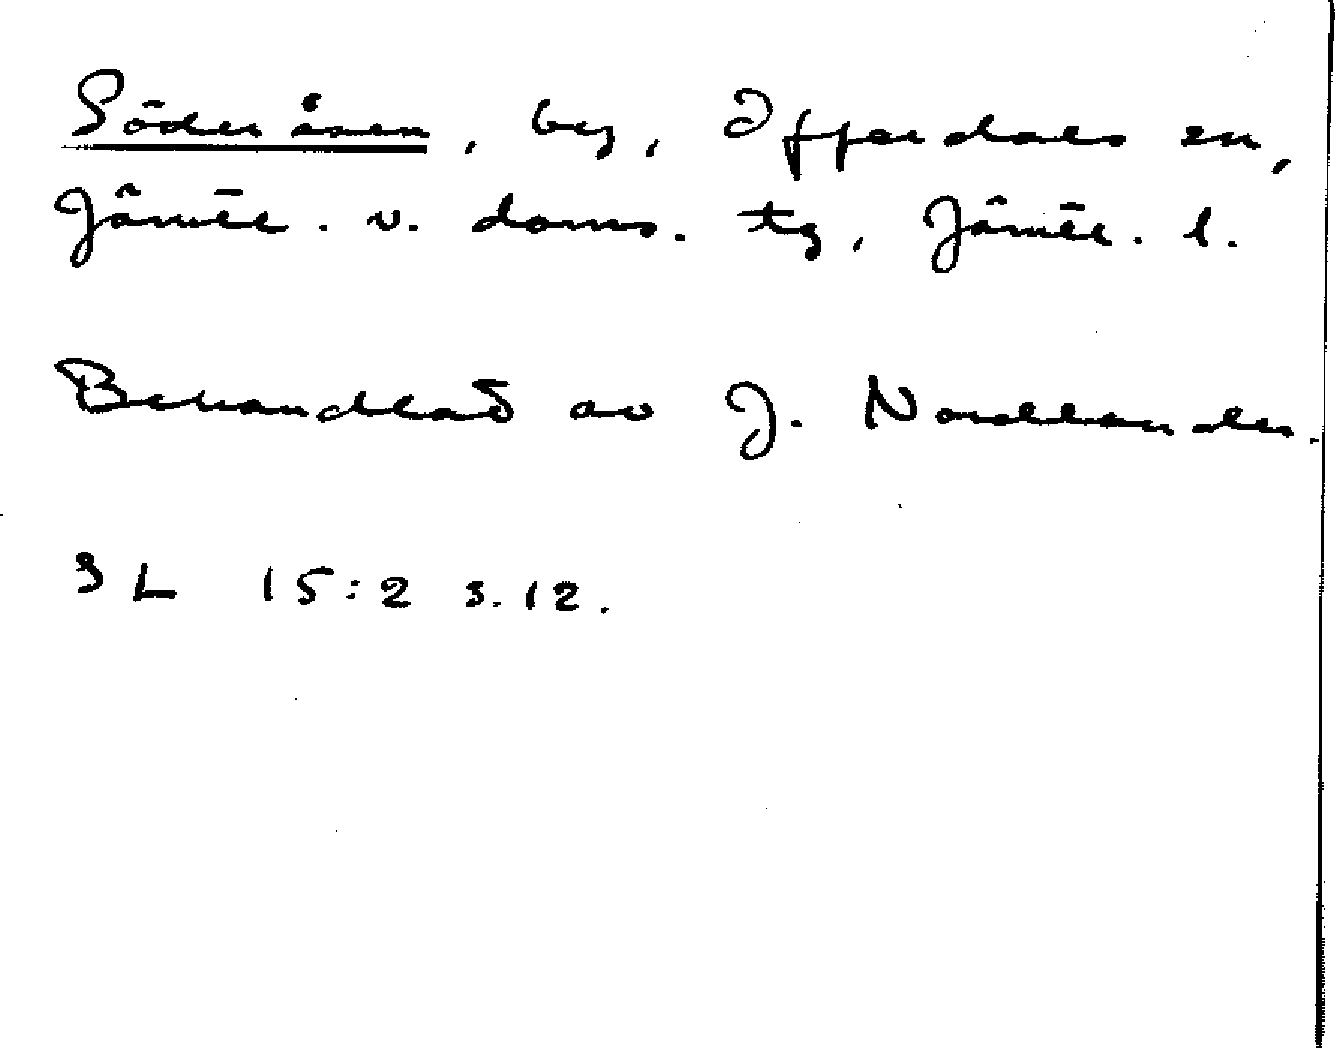 Söderåsen, by, Offerdals sn,
Jämtl. v. doms. tg, Jämtl. l.
Behandlat av J. Nordlander.
SL 15:2 s. 12.